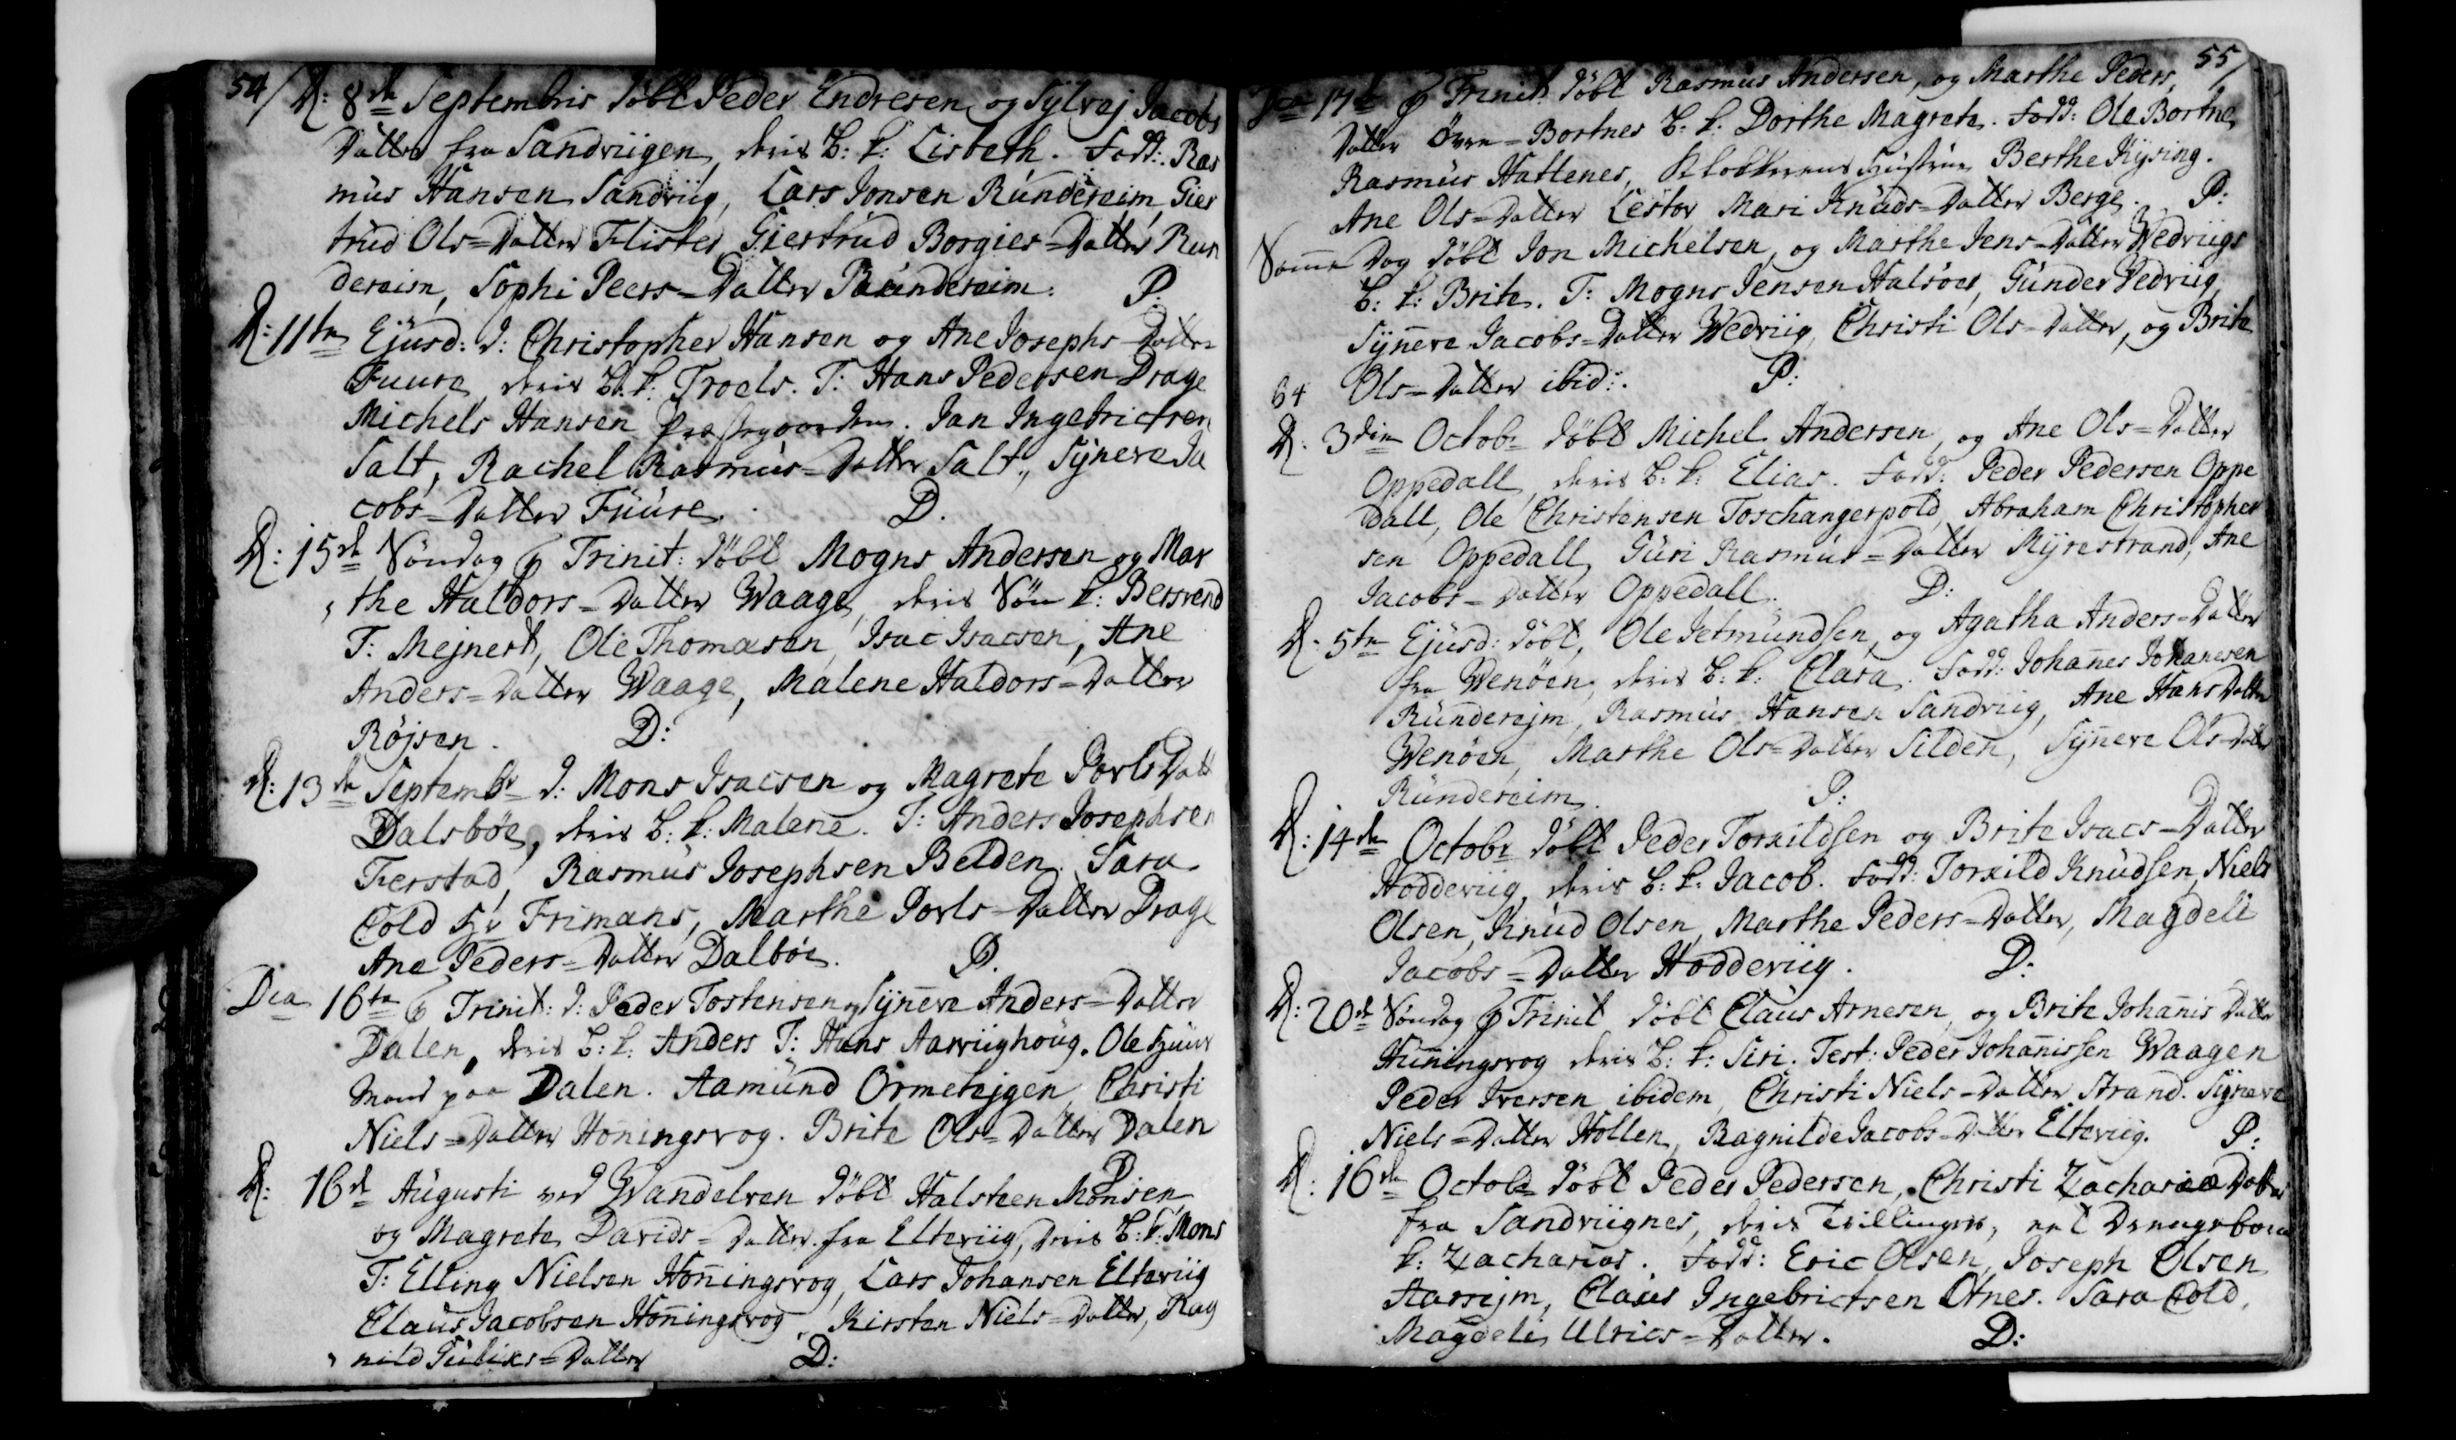 54/ D: 8de Septembris döbt Peder Endresen og Sylvej Jacobs
Datter fra Sandviigen, deris B: k: Lisbeth. Fadd: Ras
mus Hansen Sandviig, Lars Jonsen Rundereim, Gier
trud Ols=Datter Flister, Giertrud Borgies=Datter Run
dereim, Sophi Peers=Datter Raundereim. P.
D: 11te Ejusd: d: Christopher Hansen og Ane Josephs=Datter
Fuure, deris B: k: Troels. T: Hans Pedersen Drage
Michels Hansen Præstegaarden. Jan Ingebrictsen
Salt, Rachel Rasmus=Datter Salt, Syneve Ja
cobs=Datter Fuure. D.
D: 15de Söndag p Trinit: döbt Mogns Andersen og Mar
the Haldors=Datter Waage, deris Sön k: Bersvend
T: Mejnert, Ole Thomæsen, Isac Isacsen, Ane
Anders=Datter Waage, Malene Haldors=Datter
Röjsen. D:
D: 13de Septembr d: Mons Isacsen og Magrete Povls Datt
Dalsböe, deris B: k: Malene. T: Anders Josephsen
Ferstad, Rasmus Josephsen Belden. Sara
Cold Hr Frimans, Marthe Povls=Datter Drage
Ane Peders=Datter Dalböe. D.
Dca 16te p Trinit: d: Peder Tostensen og Synneve Anders=Datter
Dalen, deris B: k: Anders T: Hans Aarviighoug. Ole Huus
Mand paa Dalen. Aamund Ormetejgen, Christi
Niels=Datter Honingsvog. Brite Ols=Datter Dalen
D
D: 16de Augusti ved Wandelven döbt Halsteen Monsen
og Magrete Davids=Datter fra Elteviig, deris B: k: Mons
T: Elling Nielsen Honningsvog, Lars Johansen Elteviig
Claus Jacobsen Honningsvog, Kirsten Niels=Datter, Rag
nild Guliks=Datter D:
55/
Dca 17de p Trinit: döbt Rasmus Andersen, og Marthe Peders,
Datter Övre=Bortnes B: k: Dorthe Magrete. Fadd: Ole Bortnes
Rasmus Hattenes, Klokkerens Hustrue Berthe Kysing.
Ane Ols=Datter Lestöv Mari Knuds=Datter Berge. P:
Samme Dag döbt Jon Michelsen, og Marthe Jens=Datter Wedviigs
B: k: Brite. T: Mogns Jensen Halsöer, Gunder Vedviig,
Synneve Jacobs=Datter Wedviig, Christi Ols=Datter, og Brite
Ols=Datter ibid:. P:
64
D. 3die Octobr döbt Michel Andersen, og Ane Ols=Datter
Oppedall, deris B: k: Elias. Fadd: Peder Pedersen Oppe
dall, Ole Christensen Toschangerpold, Abraham Christopher
sen Oppedall, Guri Rasmus=Datter Myrestrand, Ane
Jacobs=Datter Oppedall. D:
D. 5te Ejusd: döbt, Ole Jetmundsen, og Agatha Anders=Datter
fra Wenöen, deris B: k: Clara. Fadd: Johannes Johanesen
Runderejm, Rasmus Hansen Sandviig, Ane Hans Datter
Wenöen, Marthe Ols=Datter Silden, Synneve Ols=Datter
Rundereim. P:
D: 14de Octobr döbt Peder Torkildsen og Brite Isacs=Datter
Hoddeviig, deris B: k: Jacob. Fadd: Torkild Knudsen, Niels
Olsen, Knud Olsen, Marthe Peders=Datter, Magdeli
Jacobs=Datter Hoddeviig. D:
D: 20de Söndag p Trinit döbt Claus Arnesen, og Brite Johannis Datter
Hunningsvog deris B: k: Siri. Test: Peder Johannissen Waagen
Peder Iversen ibidem, Christi Niels=Datter Strand. Synneve
Niels=Datter Hollen, Ragnilde Jacobs=Datter Elteviig. P:
D: 16de Octobr döbt Peder Pedersen, Christi Zachariæ Datter
fra Sandviignes, deris Tvillinger, et Drengebarn
k: Zacharias. Fadd: Eric Olsen, Joseph Olsen
Aarsejm, Claus Ingebrictsen Otnes. Sara Cold,
Magdeli Ulrics=Datter. D: